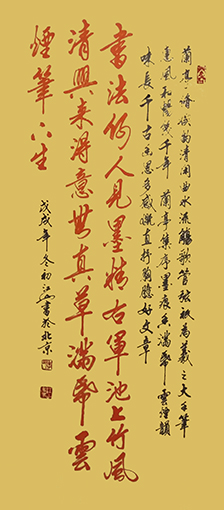 蘭亭脩禊韵清閑曲水流觴歌管弦為羲之大手筆
惠風和暢幾千年蘭亭集序墨痕香滿帋雲煙韻
味長千古興思多感慨直抒胸臆好文章
書法何人見墨精右軍池上竹風
清興来得意無真草滿帋雲
煙筆下生
戊戌年冬初江山書於北京